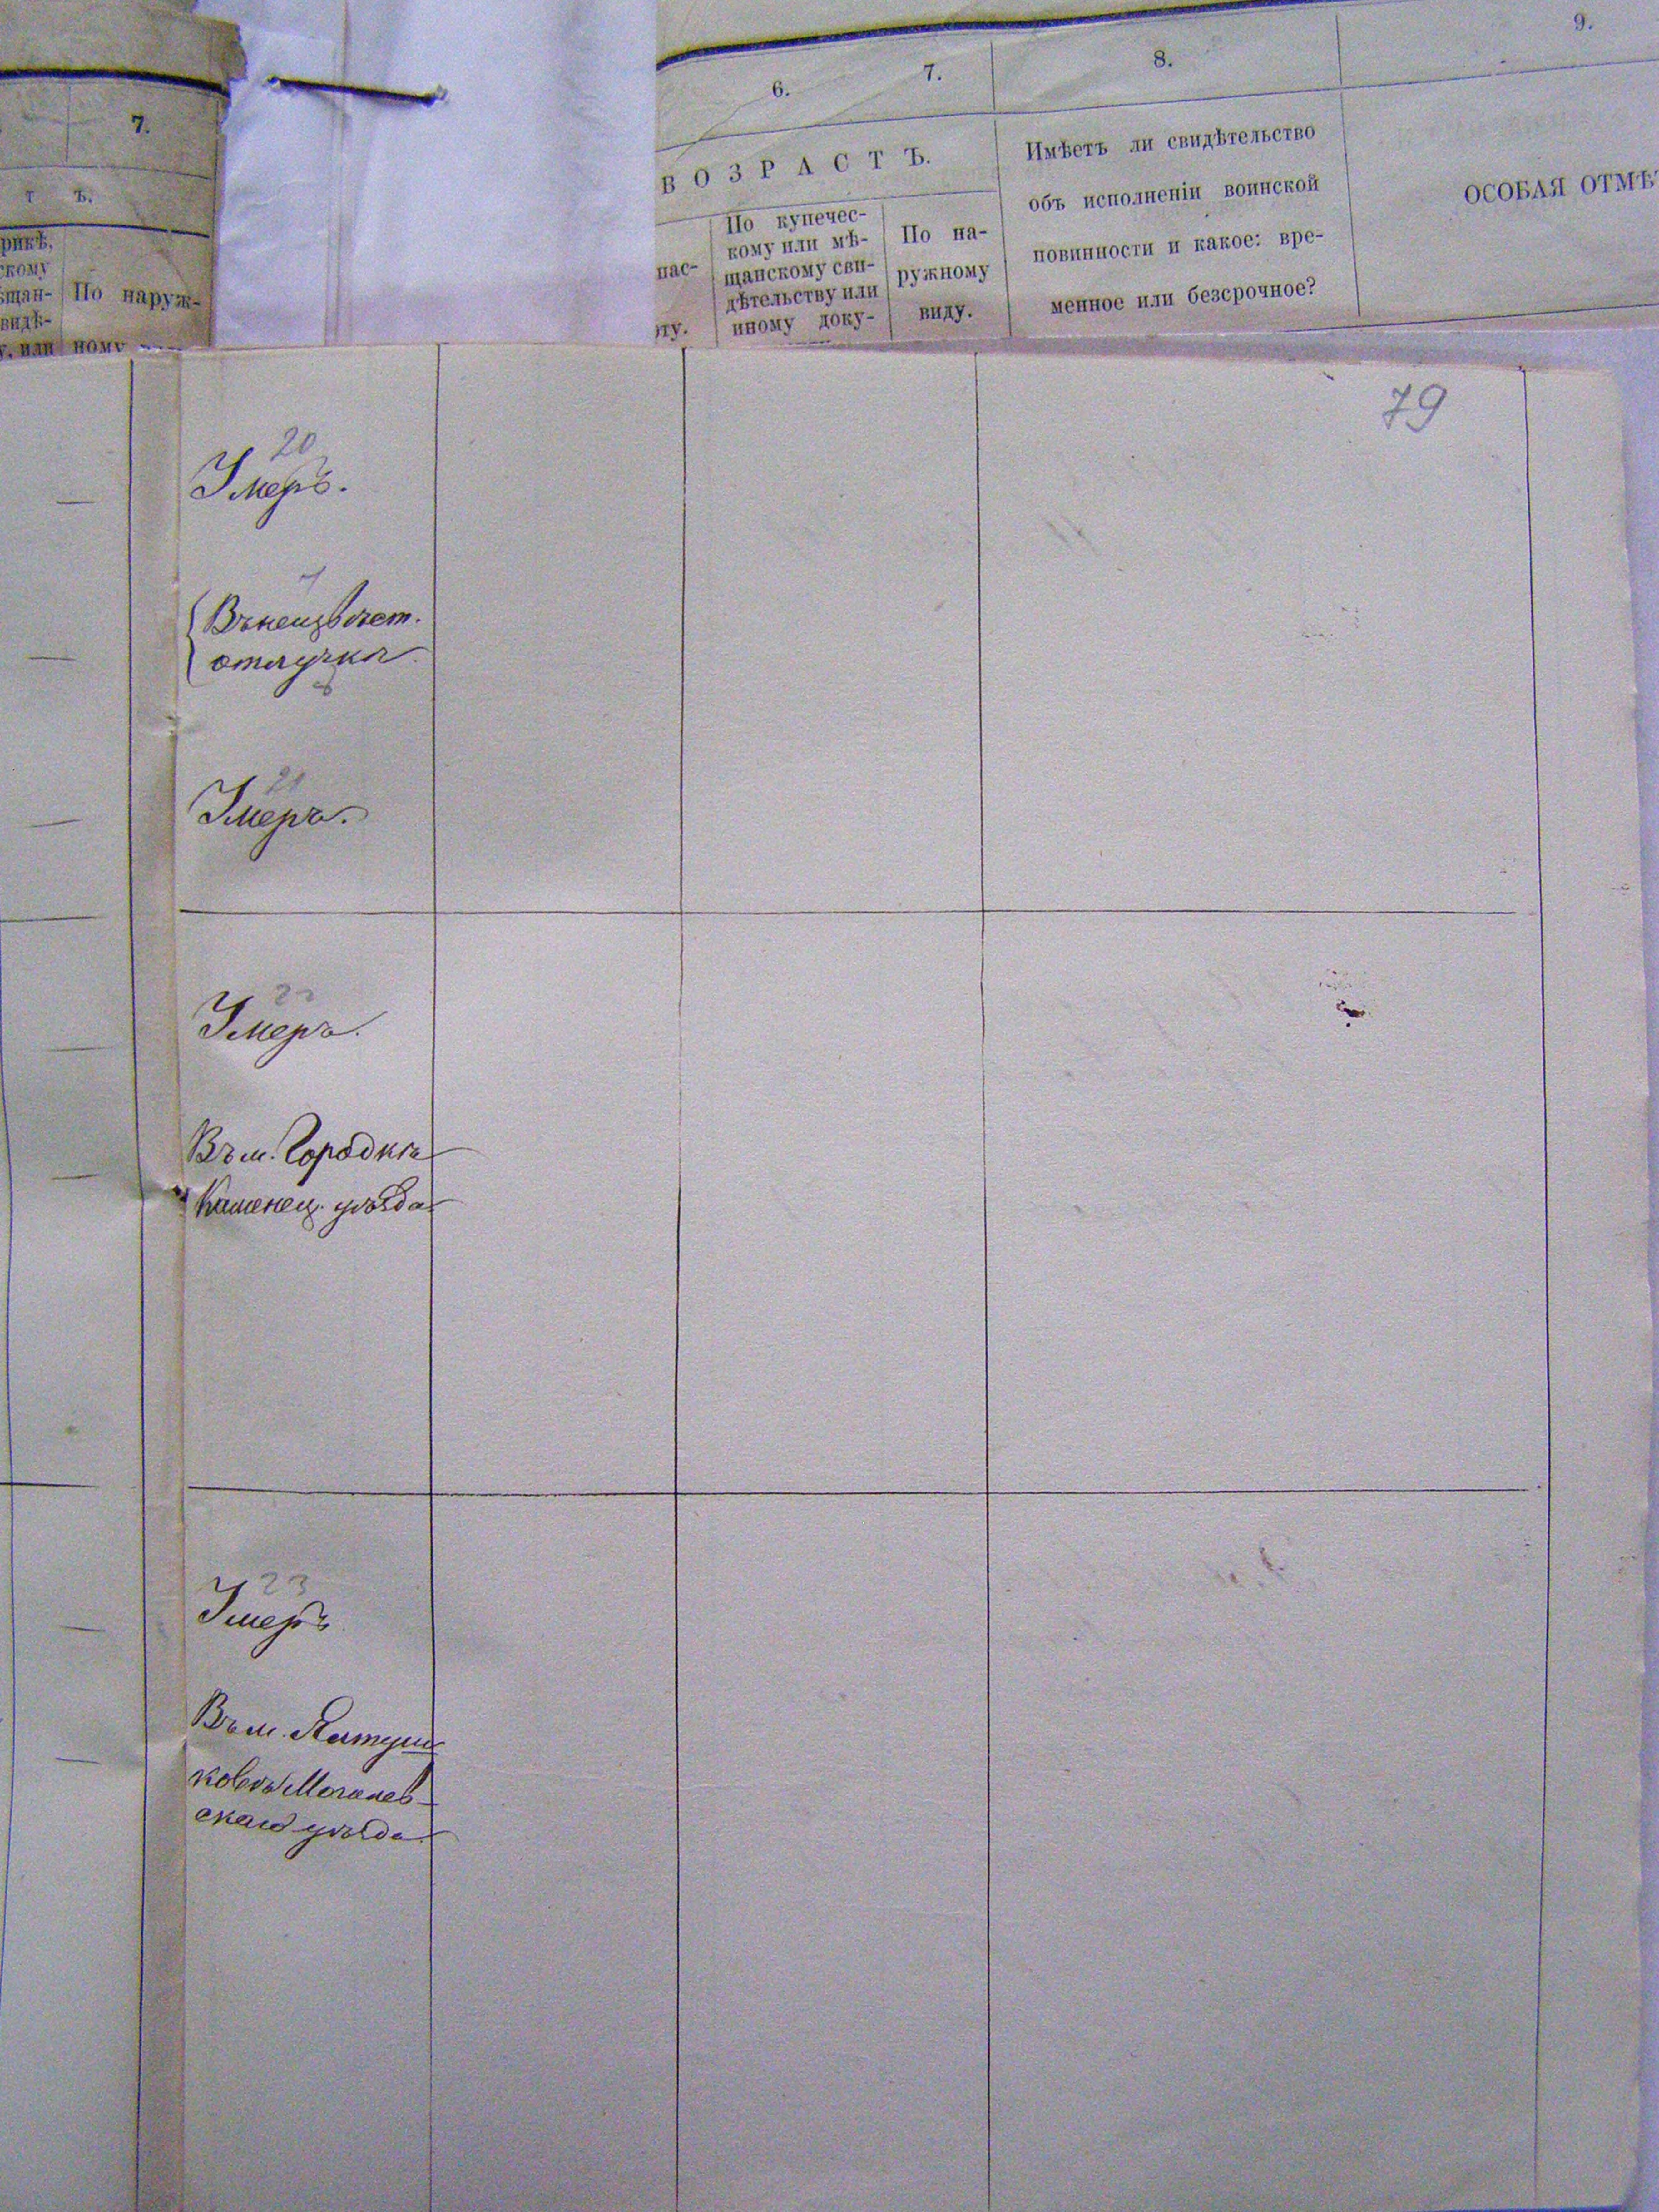 7.
Т Ъ.
рикѣ,
скому
ѣщан-
видѣ-
у, или
По наруж-
ному
6.
7.
8.
9.
ВОЗРАСТЪ.
пас-
рту.
По купечес-
кому или мѣ-
щанскому сви-
дѣтельству или
иному доку-
По на-
ружному
виду.
Имѣетъ ли свидѣтельство
объ исполненіи воинской
повинности и какое: вре-
менное или безсрочное?
ОСОБАЯ ОТМѢТ
79
20
Умеръ.
Въ неизвѣст.
отлучкѣ
21
Умеръ.
22
Умеръ.
Въ м. Городкѣ
Каменец. уѣзда
23
Умеръ
Въ м. Ялтуш
ковѣ Могилев-
скаго уѣзда